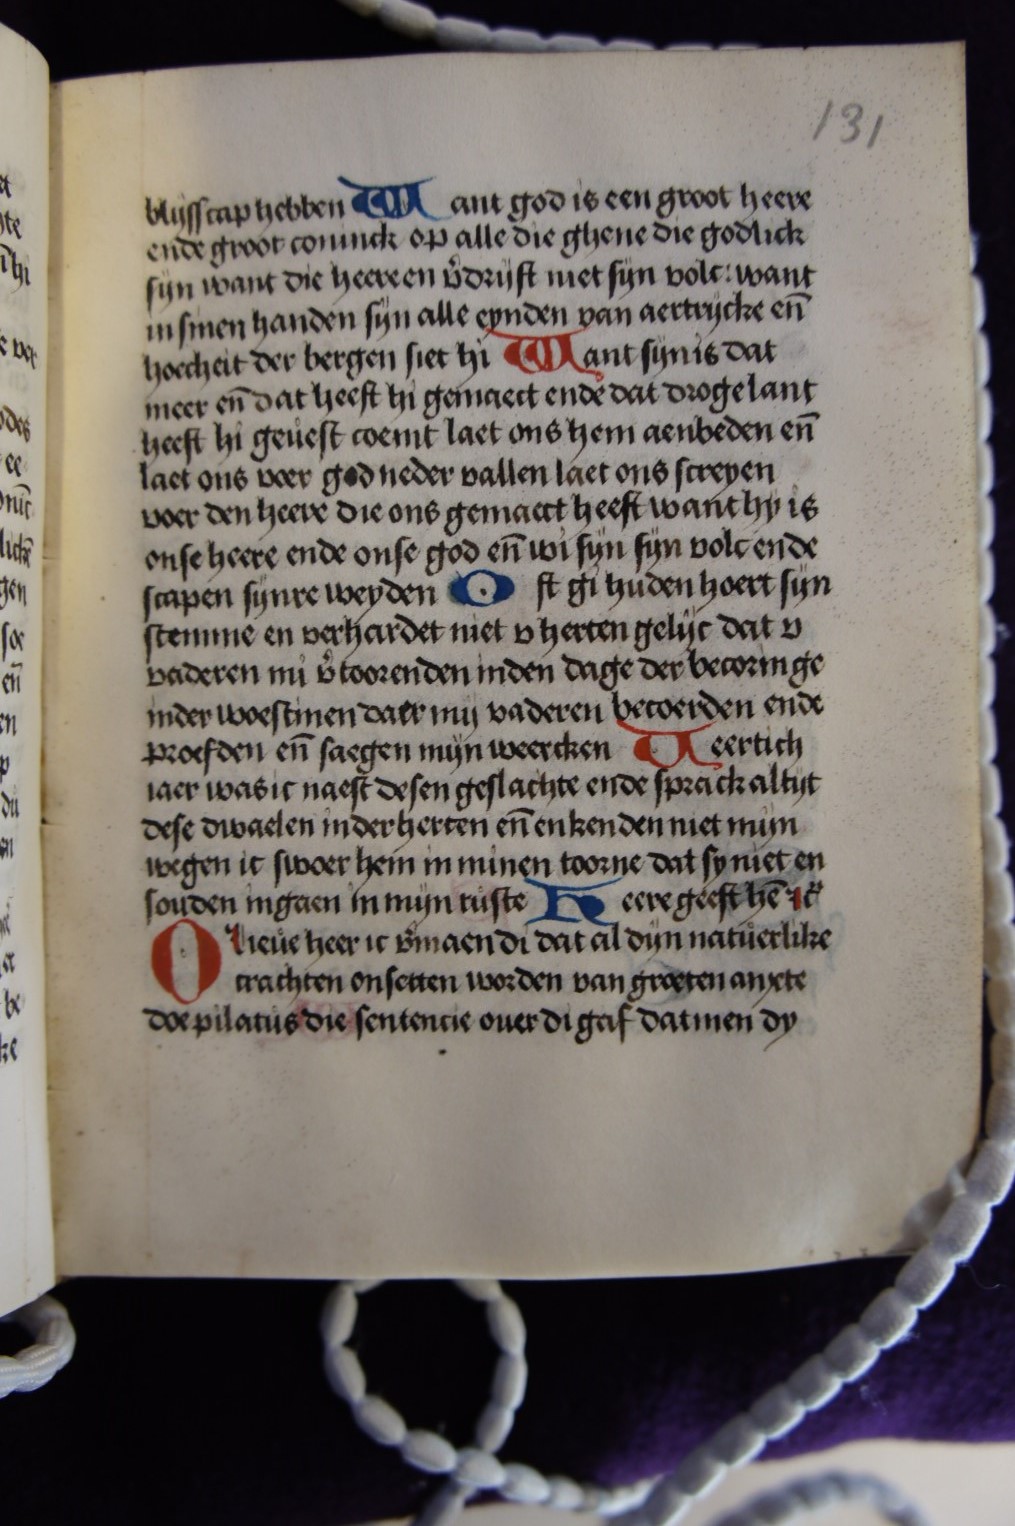 131
blijsscap hebben Want god is een groot heere
ende groot coninck op alle die ghene die godlick
sijn want die heere en v̉drijft niet sijn volc: want
in sinen handen sijn alle eynden van aertrijcke en̄
hoecheit der bergen siet hi Want sijn is dat
meer en̄ dat heeft hi gemaect ende dat droge lant
heeft hi geuest coemt laet ons hem aenbeden en̄
laet ons voer god neder vallen laet ons screyen
voer den heere die ons gemaect heeft want hy is
onse heere ende onse god en̄ wi sijn sijn volc ende
scapen sijnre weyden Ost gi huden hoert sijn
stemme en verhardet niet v herten gelijc dat v
vaderen mi v̉toorenden inden dage der becoringe
inder woestinen daer mij vaderen becoerden ende
proefden en̄ saegen mijn weercken Veertich
iaer was ic naest desen geslachte ende sprack altijt
dese dwaelen inder herten en̄ en kenden niet mijn
wegen ic swoer hem in minen toorne dat sy niet en
souden ingaen in mijn ruste Heere geeft hē
O lieue heer ic v̉maen di dat al dijn natuerlike
crachten onsetten worden van groeten anxte
doe pilatus die sentencie ouer di gaf datmen dy